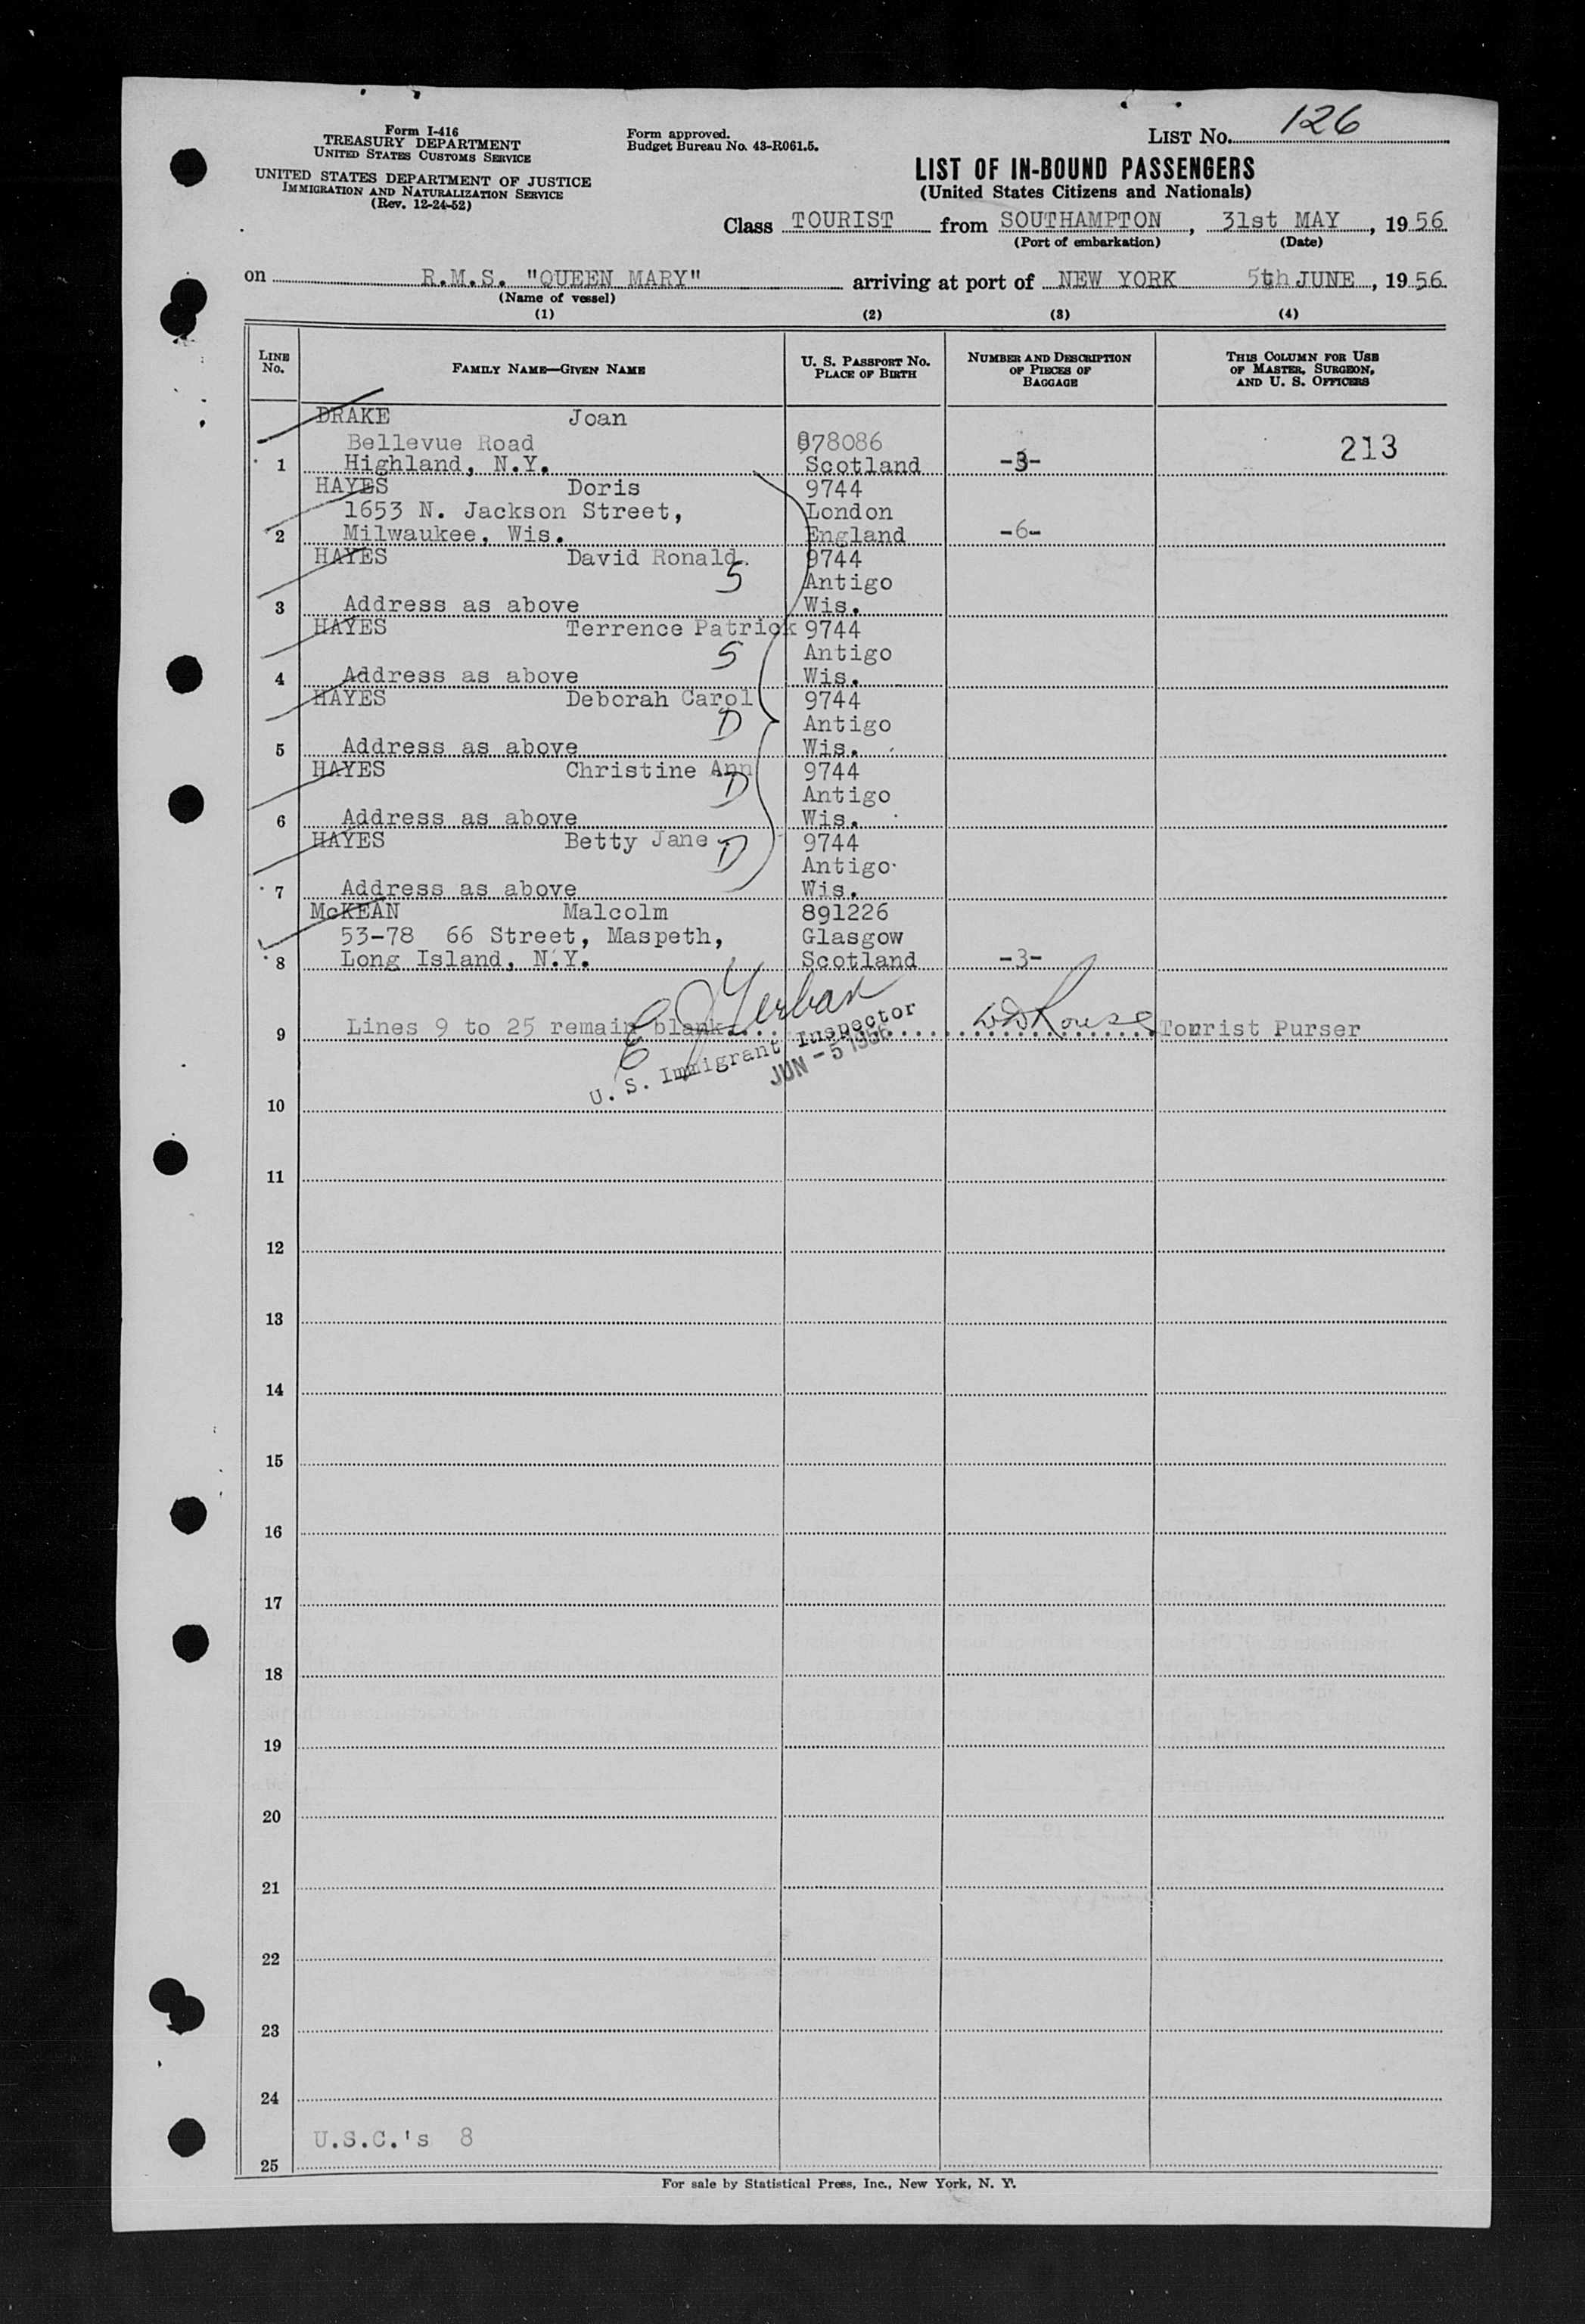 Form I-416
TREASURY DEPARTMENT
UNITED STATES CUSTOMS SERVICE
UNITED STATES DEPARTMENT OF JUSTICE
IMMIGRATION AND NATURALIZATION SERVICE
(Rev. 12-24-52)
Form approved.
Budget Bureau No. 43-R061.5.
LIST No. 126
LIST OF IN-BOUND PASSENGERS
(United States Citizens and Nationals)
Class TOURIST from SOUTHAMPTON, 31st MAY, 1956
(Port of embarkation) (Date)
on R.M.S. "QUEEN MARY" arriving at port of NEW YORK 5th JUNE, 1956
(Name of vessel)
(1) (2) (3) (4)
LINE No. FAMILY NAME—GIVEN NAME U. S. PASSPORT No. PLACE OF BIRTH NUMBER AND DESCRIPTION OF PIECES OF BAGGAGE THIS COLUMN FOR USE OF MASTER, SURGEON, AND U. S. OFFICERS
DRAKE Joan
Bellevue Road 878086 213
1 Highland, N.Y. Scotland -3-
HAYES Doris 9744
1653 N. Jackson Street, London
2 Milwaukee, Wis. England -6-
HAYES David Ronald. 9744
S Antigo
3 Address as above Wis.
HAYES Terrence Patrick 9744
S Antigo
4 Address as above Wis.
HAYES Deborah Carol 9744
D Antigo
5 Address as above Wis.
HAYES Christine Ann 9744
D Antigo
6 Address as above Wis.
HAYES Betty Jane 9744
D Antigo
7 Address as above Wis.
McKEAN Malcolm 891226
53-78 66 Street, Maspeth, Glasgow
8 Long Island, N.Y. Scotland -3-
9 Lines 9 to 25 remain blank Tourist Purser
U. S. Immigrant Inspector
JUN - 5 1956
10
11
12
13
14
15
16
17
18
19
20
21
22
23
24
U.S.C.'s 8
25
For sale by Statistical Press, Inc., New York, N. Y.